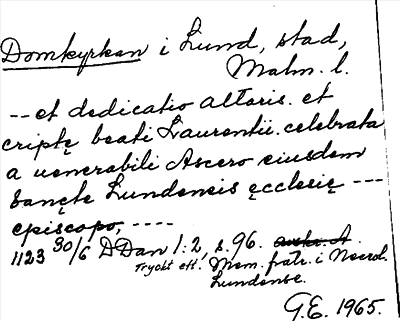 Domkyrkan i Lund, stad,
Malm. l.
--et dedicatio altaris. et
criptę beati Laurentii. celebrata
a uenerabili Ascero eiusdem
sanctę Lundensis ęcclesię ---
episcopo, ----
1123 30/6 DDan 1:2, s. 96.
Tryckt eft. Mem. fratr. i Necrol.
Lundense.
G.E. 1965.